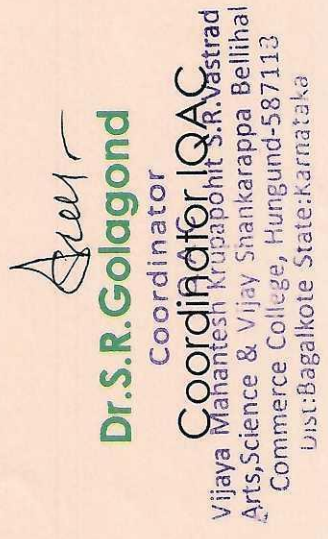 Dr.S.R.Golagond
Coordinator
Coordinator IQAC
Vijaya Mahantesh Krupapohit S.R.Vastrad
Arts,Science & Vijay Shankarappa Bellihal
Commerce College, Hungund-587118
Dist:Bagalkote State:Karnataka